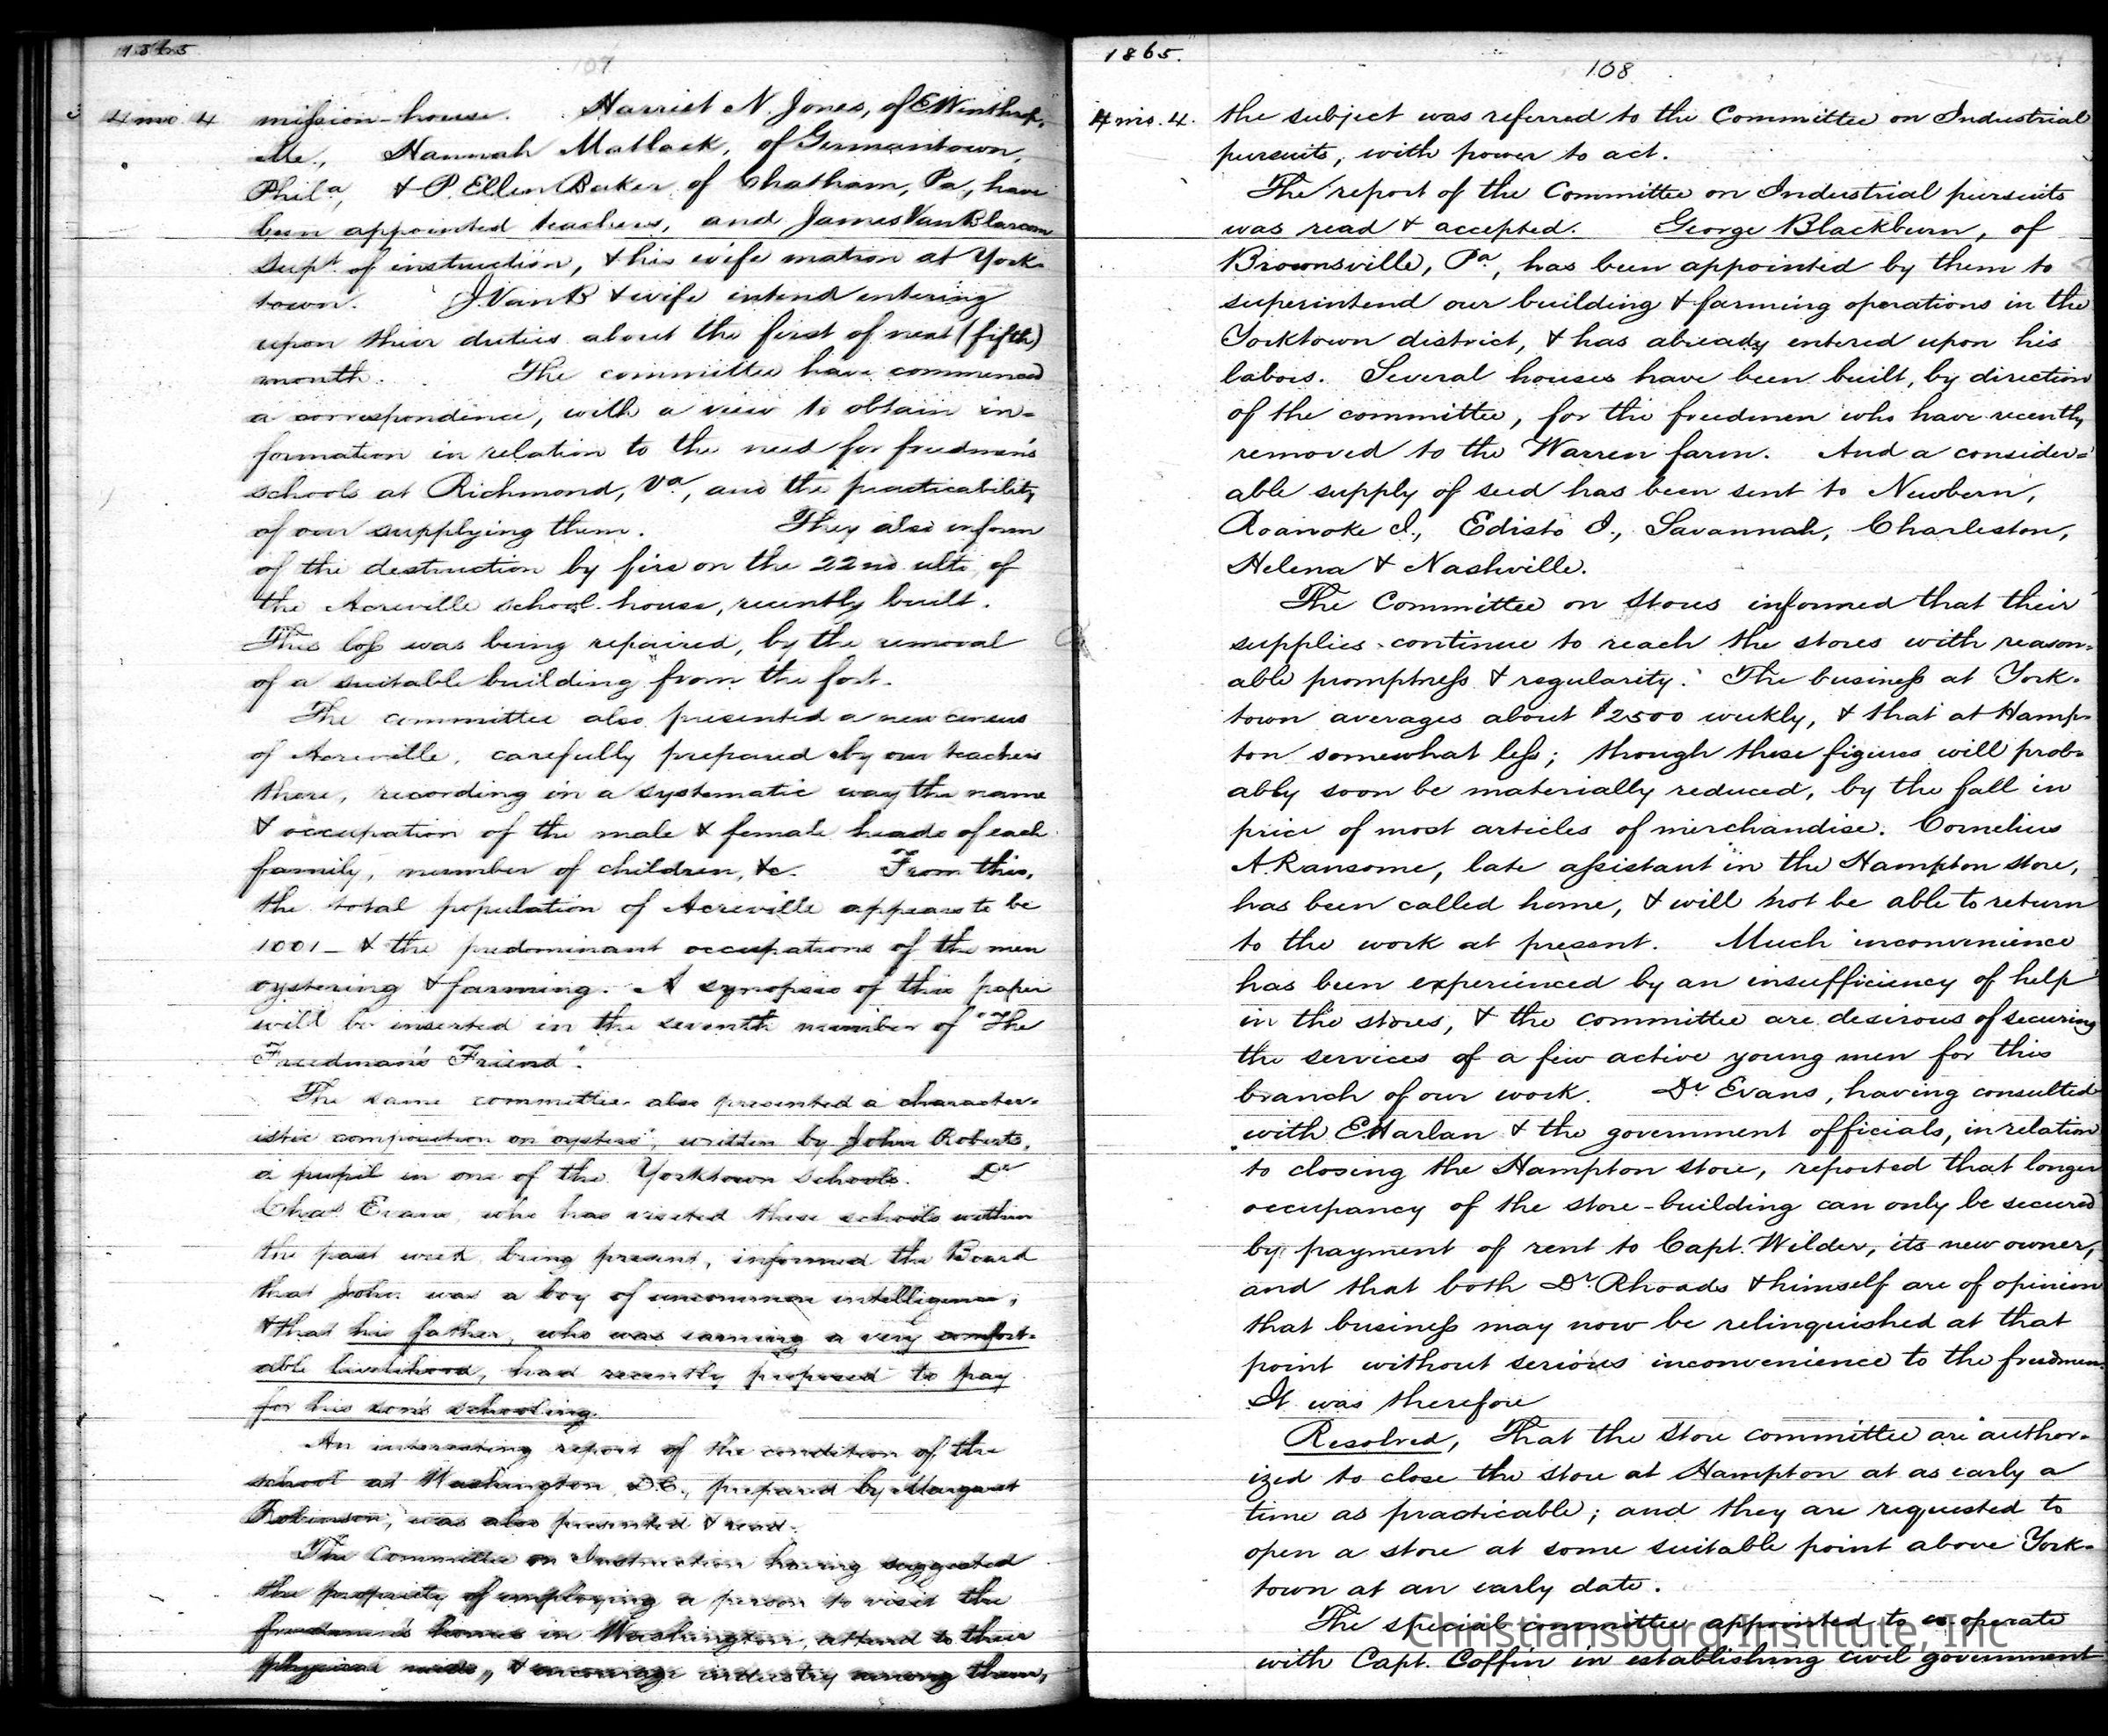 1865
107
4 mo. 4 mission-house. Harriet N. Jones, of E Winthrop,
Me., Hannah Matlack, of Germantown,
Phila, & P. Ellen Baker of Chatham, Pa, have
been appointed teachers, and James Van Blarcom
Supt. of instruction, & his wife matron at York-
town. J. Van B & wife intend entering
upon their duties about the first of next (fifth)
month. The committee have commenced
a correspondence, with a view to obtain in-
formation in relation to the need for freedmen's
schools at Richmond, Va, and the practicability
of our supplying them. They also inform
of the destruction by fire on the 22nd ulto, of
the Acreville school-house, recently built.
This loss was being repaired, by the removal
of a suitable building from the fort.
The committee also presented a new census
of Acreville, carefully prepared by our teachers
there, recording in a systematic way the name
& occupation of the male & female heads of each
family, number of children, &c. From this,
the total population of Acreville appears to be
1001 - & the predominant occupations of the men
oystering & farming. A synopsis of this paper
will be inserted in the seventh number of "The
Freedman's Friend".
The same committee also presented a character-
istic composition on "oysters", written by John Roberts,
a pupil in one of the Yorktown schools. Dr
Chas. Evans, who has visited these schools within
the past week, being present, informed the Board
that John was a boy of uncommon intelligence;
& that his father, who was earning a very comfort-
able livelihood, had recently proposed to pay
for his son's schooling.
An interesting report of the condition of the
school at Washington, D.C., prepared by Margaret
Robinson, was also presented & read.
The Committee on Instruction having suggested
the propriety of employing a person to visit the
freedmen's homes in Washington, attend to their
physical needs, & encourage industry among them,
1865.
108
4 mo. 4. the subject was referred to the Committee on Industrial
pursuits, with power to act.
The report of the Committee on Industrial pursuits
was read & accepted. George Blackburn, of
Brownsville, Pa, has been appointed by them to
superintend our building & farming operations in the
Yorktown district, & has already entered upon his
labors. Several houses have been built, by direction
of the committee, for the freedmen who have recently
removed to the Warren farm. And a consider=
able supply of seed has been sent to Newbern,
Roanoke I., Edisto I., Savannah, Charleston,
Helena & Nashville.
The Committee on Stores informed that their
supplies continue to reach the stores with reason-
able promptness & regularity. The business at York-
town averages about $2500 weekly, & that at Hamp-
ton somewhat less; though these figures will prob-
ably soon be materially reduced, by the fall in
price of most articles of merchandise. Cornelius
A. Ransome, late assistant in the Hampton store,
has been called home, & will not be able to return
to the work at present. Much inconvenience
has been experienced by an insufficiency of help
in the stores, & the committee are desirous of securing
the services of a few active young men for this
branch of our work. Dr. Evans, having consulted
with E Harlan & the government officials, in relation
to closing the Hampton store, reported that longer
occupancy of the store-building can only be secured
by payment of rent to Capt. Wilder, its new owner,
and that both Dr. Rhoads & himself are of opinion
that business may now be relinquished at that
point without serious inconvenience to the freedmen.
It was therefore
Resolved, That the Store committee are author-
ized to close the store at Hampton at as early a
time as practicable; and they are requested to
open a store at some suitable point above York-
town at an early date.
The special committee appointed to co-operate
with Capt. Coffin in establishing civil government
Christiansburg Institute, Inc